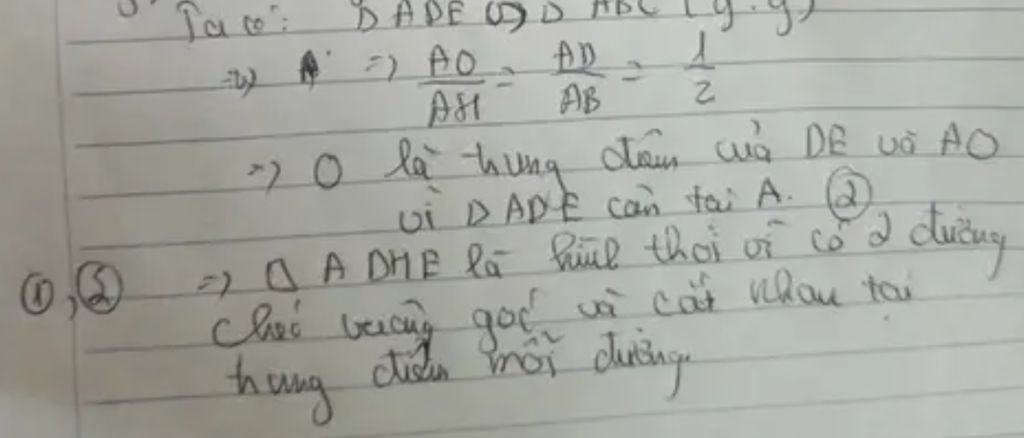 Ta có: Δ ADE ∽ Δ ABC (g.g)
=> => AO/AH = AD/AB = 1/2
=> O là trung điểm của DE và AO
vì Δ ADE cân tại A. ②
①, ② => □ ADHE là hình thoi vì có 2 đường
chéo vuông góc và cắt nhau tại
trung điểm mỗi đường